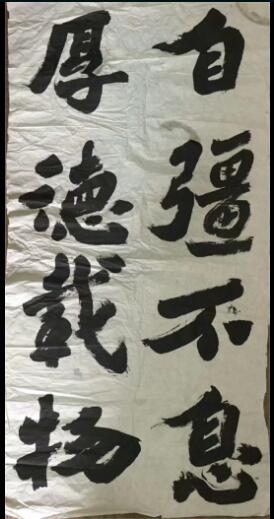 自彊不息
厚德載物